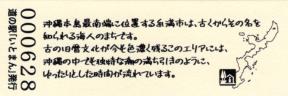 道の駅「いとまん」発行
0000628
沖縄本島最南端に位置する糸満市は、古くからその名を
知られる海人のまちです。
古の旧暦文化が今も色濃く残るこのエリアには、
沖縄の中でも独特な潮の満ち引きのように、
ゆったりとした時間が流れています。